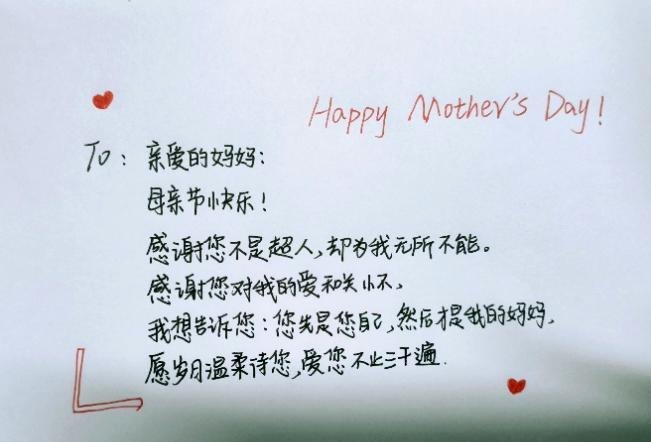 Happy Mother's Day!
To: 亲爱的妈妈:
母亲节快乐!
感谢您不是超人,却为我无所不能。
感谢您对我的爱和关怀,
我想告诉您:您先是您自己,然后才是我的妈妈,
愿岁月温柔待您,爱您不止三千遍.